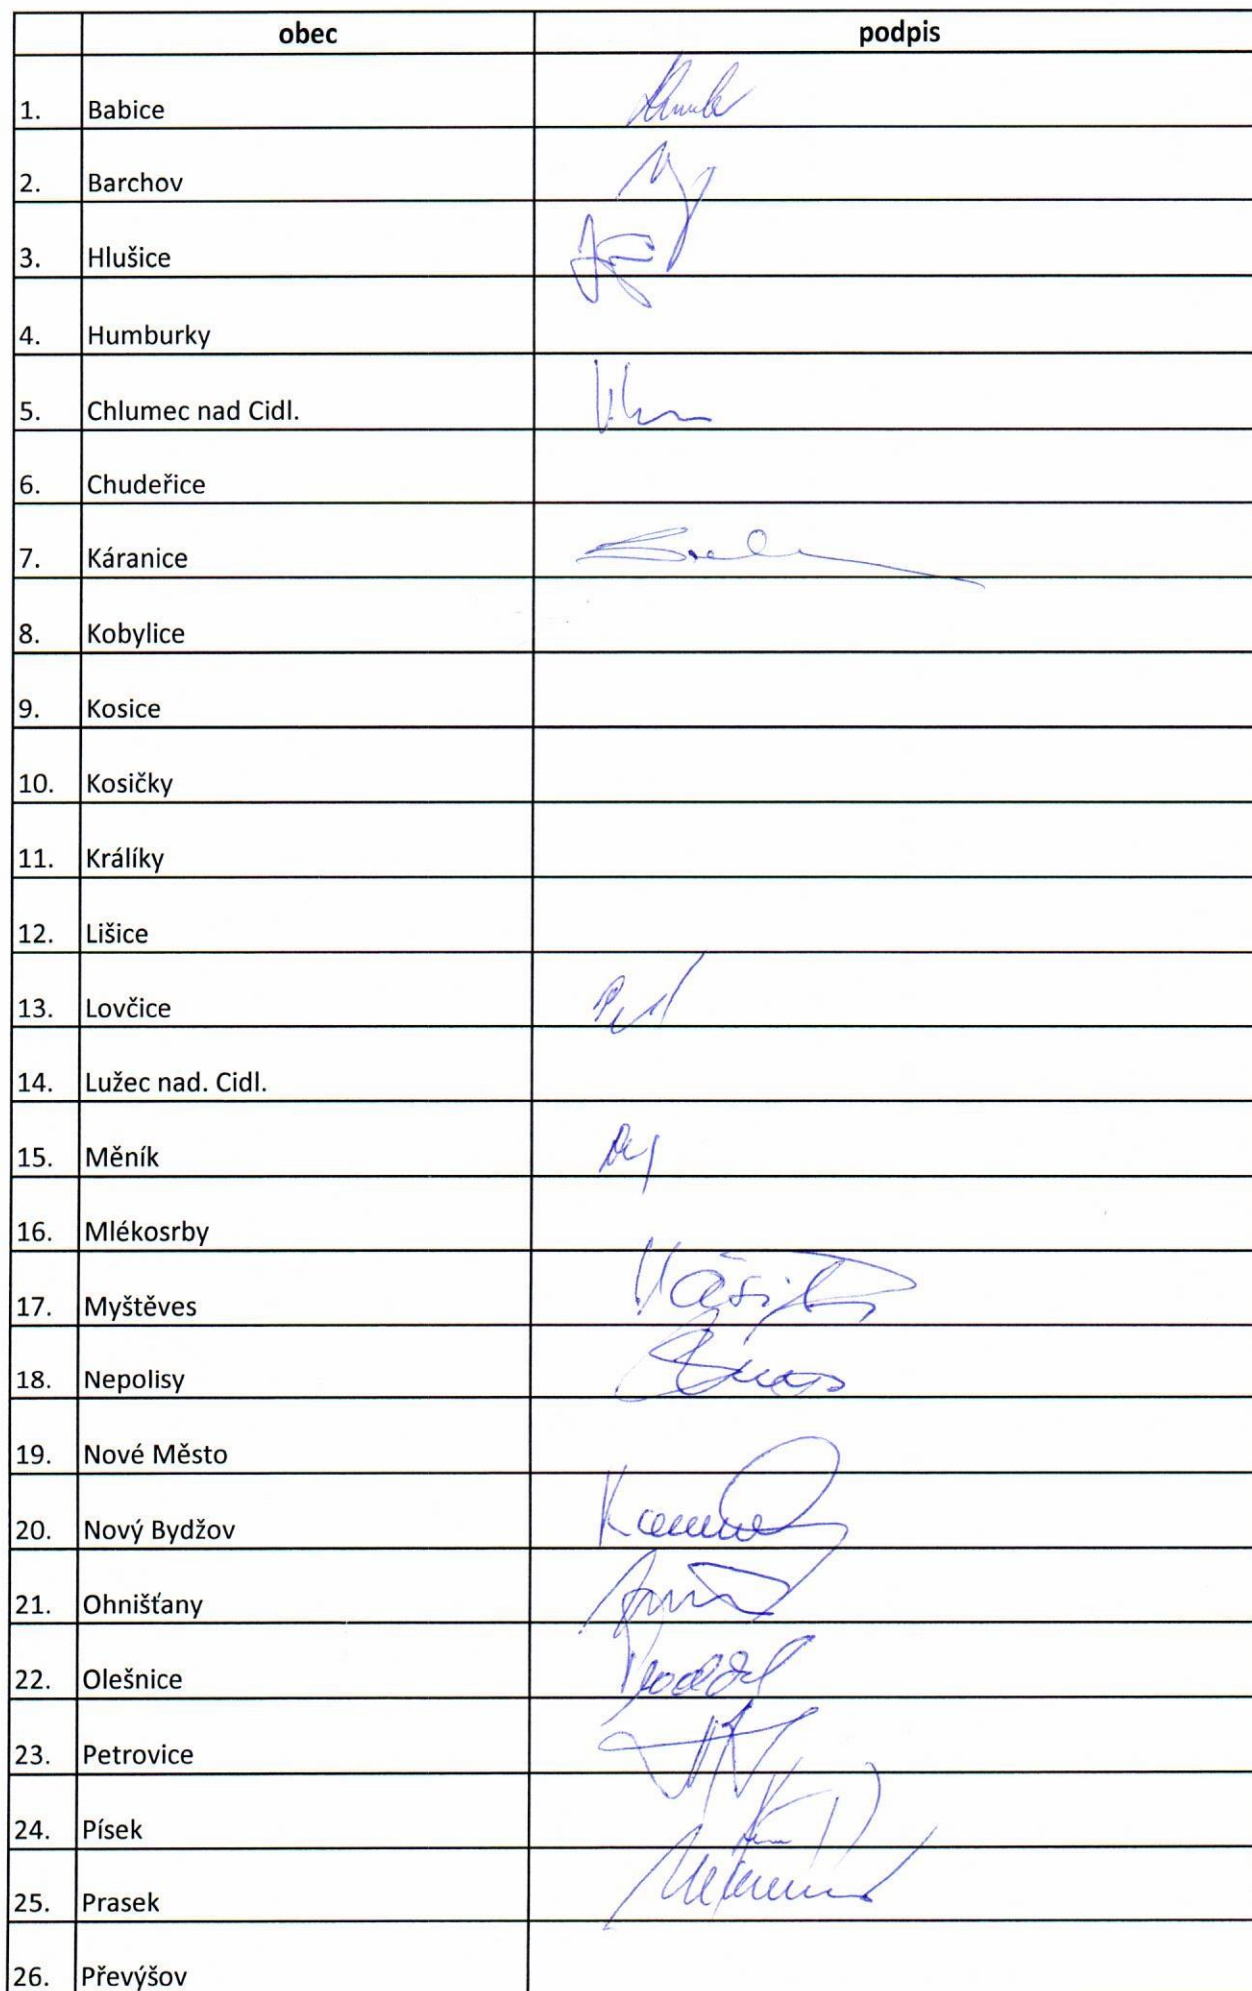 obec podpis
1. Babice
2. Barchov
3. Hlušice
4. Humburky
5. Chlumec nad Cidl.
6. Chudeřice
7. Káranice
8. Kobylice
9. Kosice
10. Kosičky
11. Králíky
12. Lišice
13. Lovčice
14. Lužec nad. Cidl.
15. Měník
16. Mlékosrby
17. Myštěves
18. Nepolisy
19. Nové Město
20. Nový Bydžov
21. Ohnišťany
22. Olešnice
23. Petrovice
24. Písek
25. Prasek
26. Převýšov